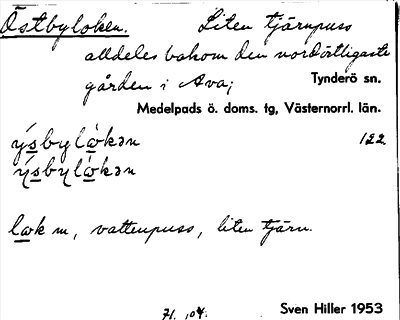 Östbyloken. Liten tjärnpuss
alldeles bakom den nordöstligaste
gården i Ava; Tynderö sn.
Medelpads ö. doms. tg, Västernorrl. län.
122
læk m, vattenpuss, liten tjärn.
Sven Hiller 1953